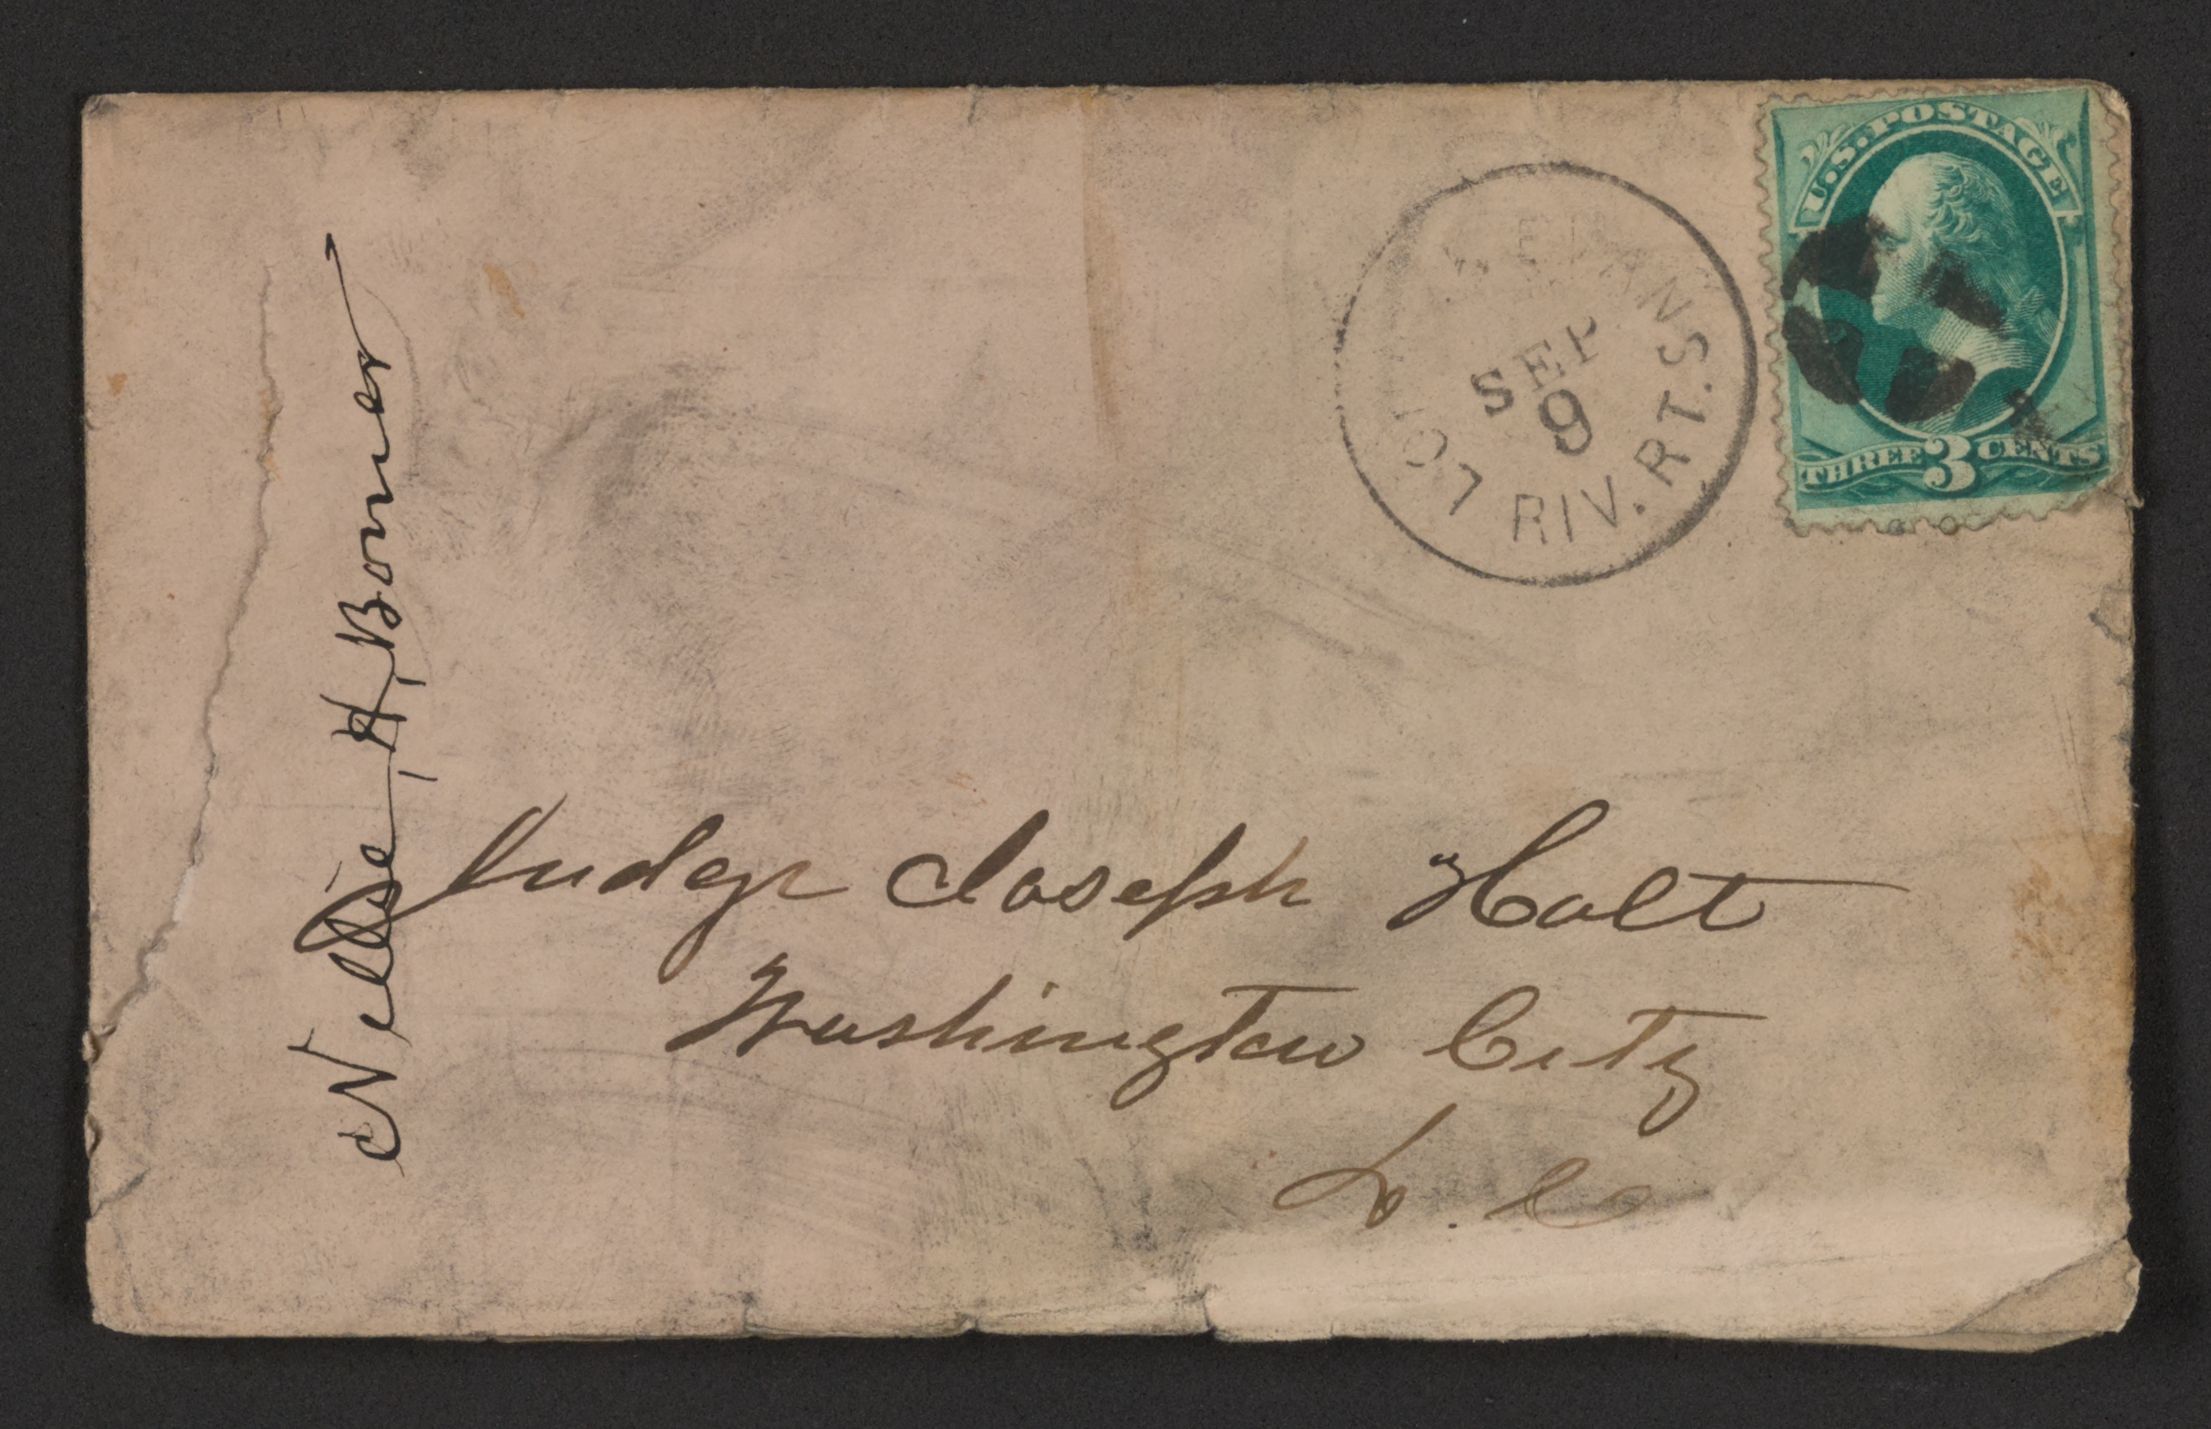 U.S. POSTAGE
THREE 3 CENTS
RIV. RT.
SEP
9
Nellie H. Bonner
Judge Joseph Holt
Washington City
D. C